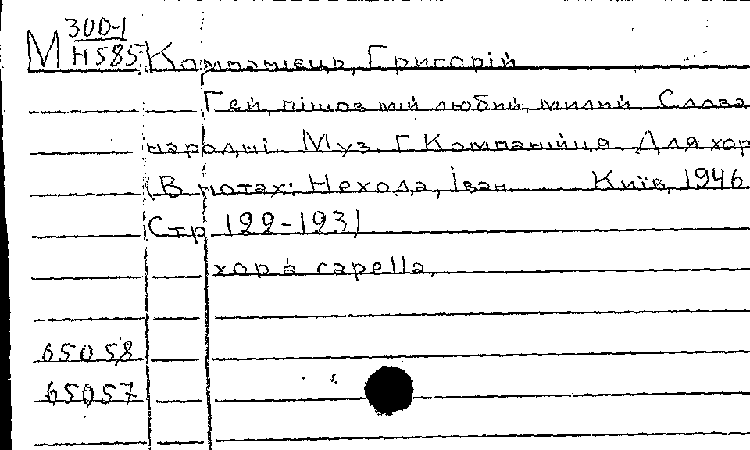 300-1
М Н585 Компанієць, Григорій
Гей, пішов мій любий, милий Слова
народні. Муз. Г. Компанійця. Для хор
(В нотах: Нехода, Іван Київ, 1946
Стр 122-123)
хор a capella.
65058
65057